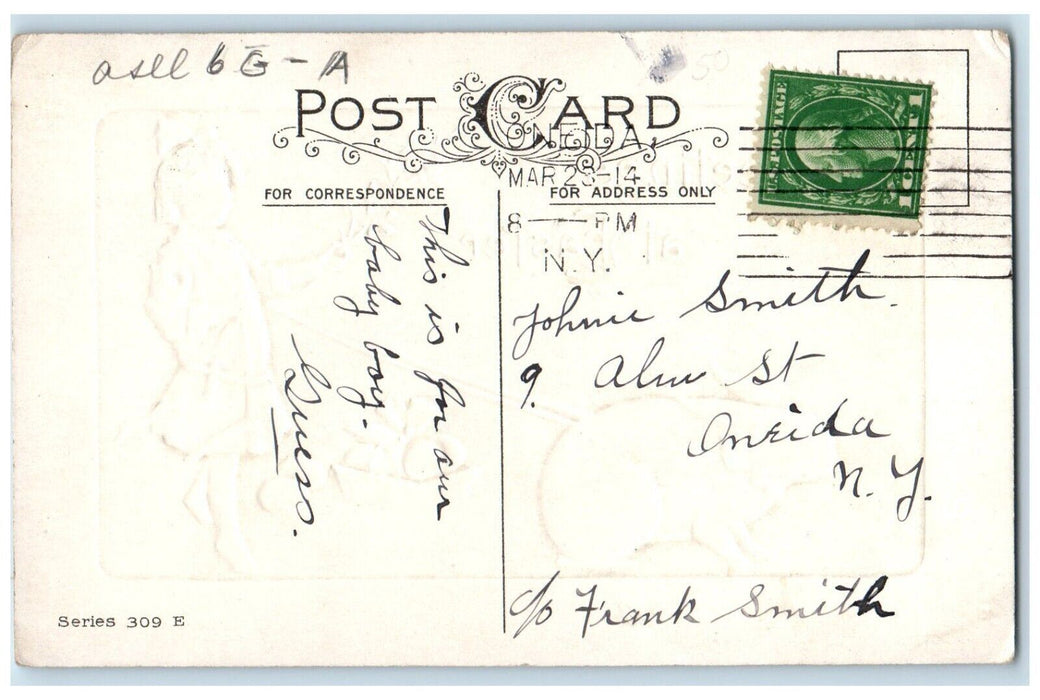 asll 6 G - A
50
POST CARD
ONEIDA,
MAR 23-14
8 — PM
N.Y.
U.S. POSTAGE
FOR CORRESPONDENCE
FOR ADDRESS ONLY
This is for our
baby boy.
Guess.
Johnie Smith.
9. Alm St
Oneida
N. Y.
c/o Frank Smith
Series 309 E